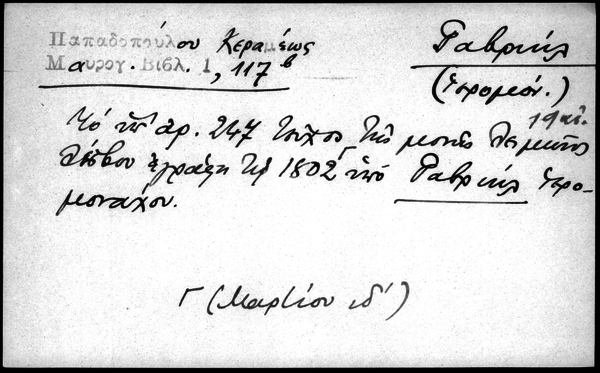 Παπαδοπούλου Κεραμέως
Μαυρογ. Βιβλ. 1, 117β
Γαβριήλ
(Ἱερομόν.)
19 αἰ.
Τὸ ὑπ' ἀρ. 247 τεῦχος τῆς μονῆς Λειμῶνος
Λέσβου ἐγράφη τῷ 1802 ὑπὸ Γαβριὴλ ἱερο-
μονάχου.
Γ (Μαρτίου ιδ')